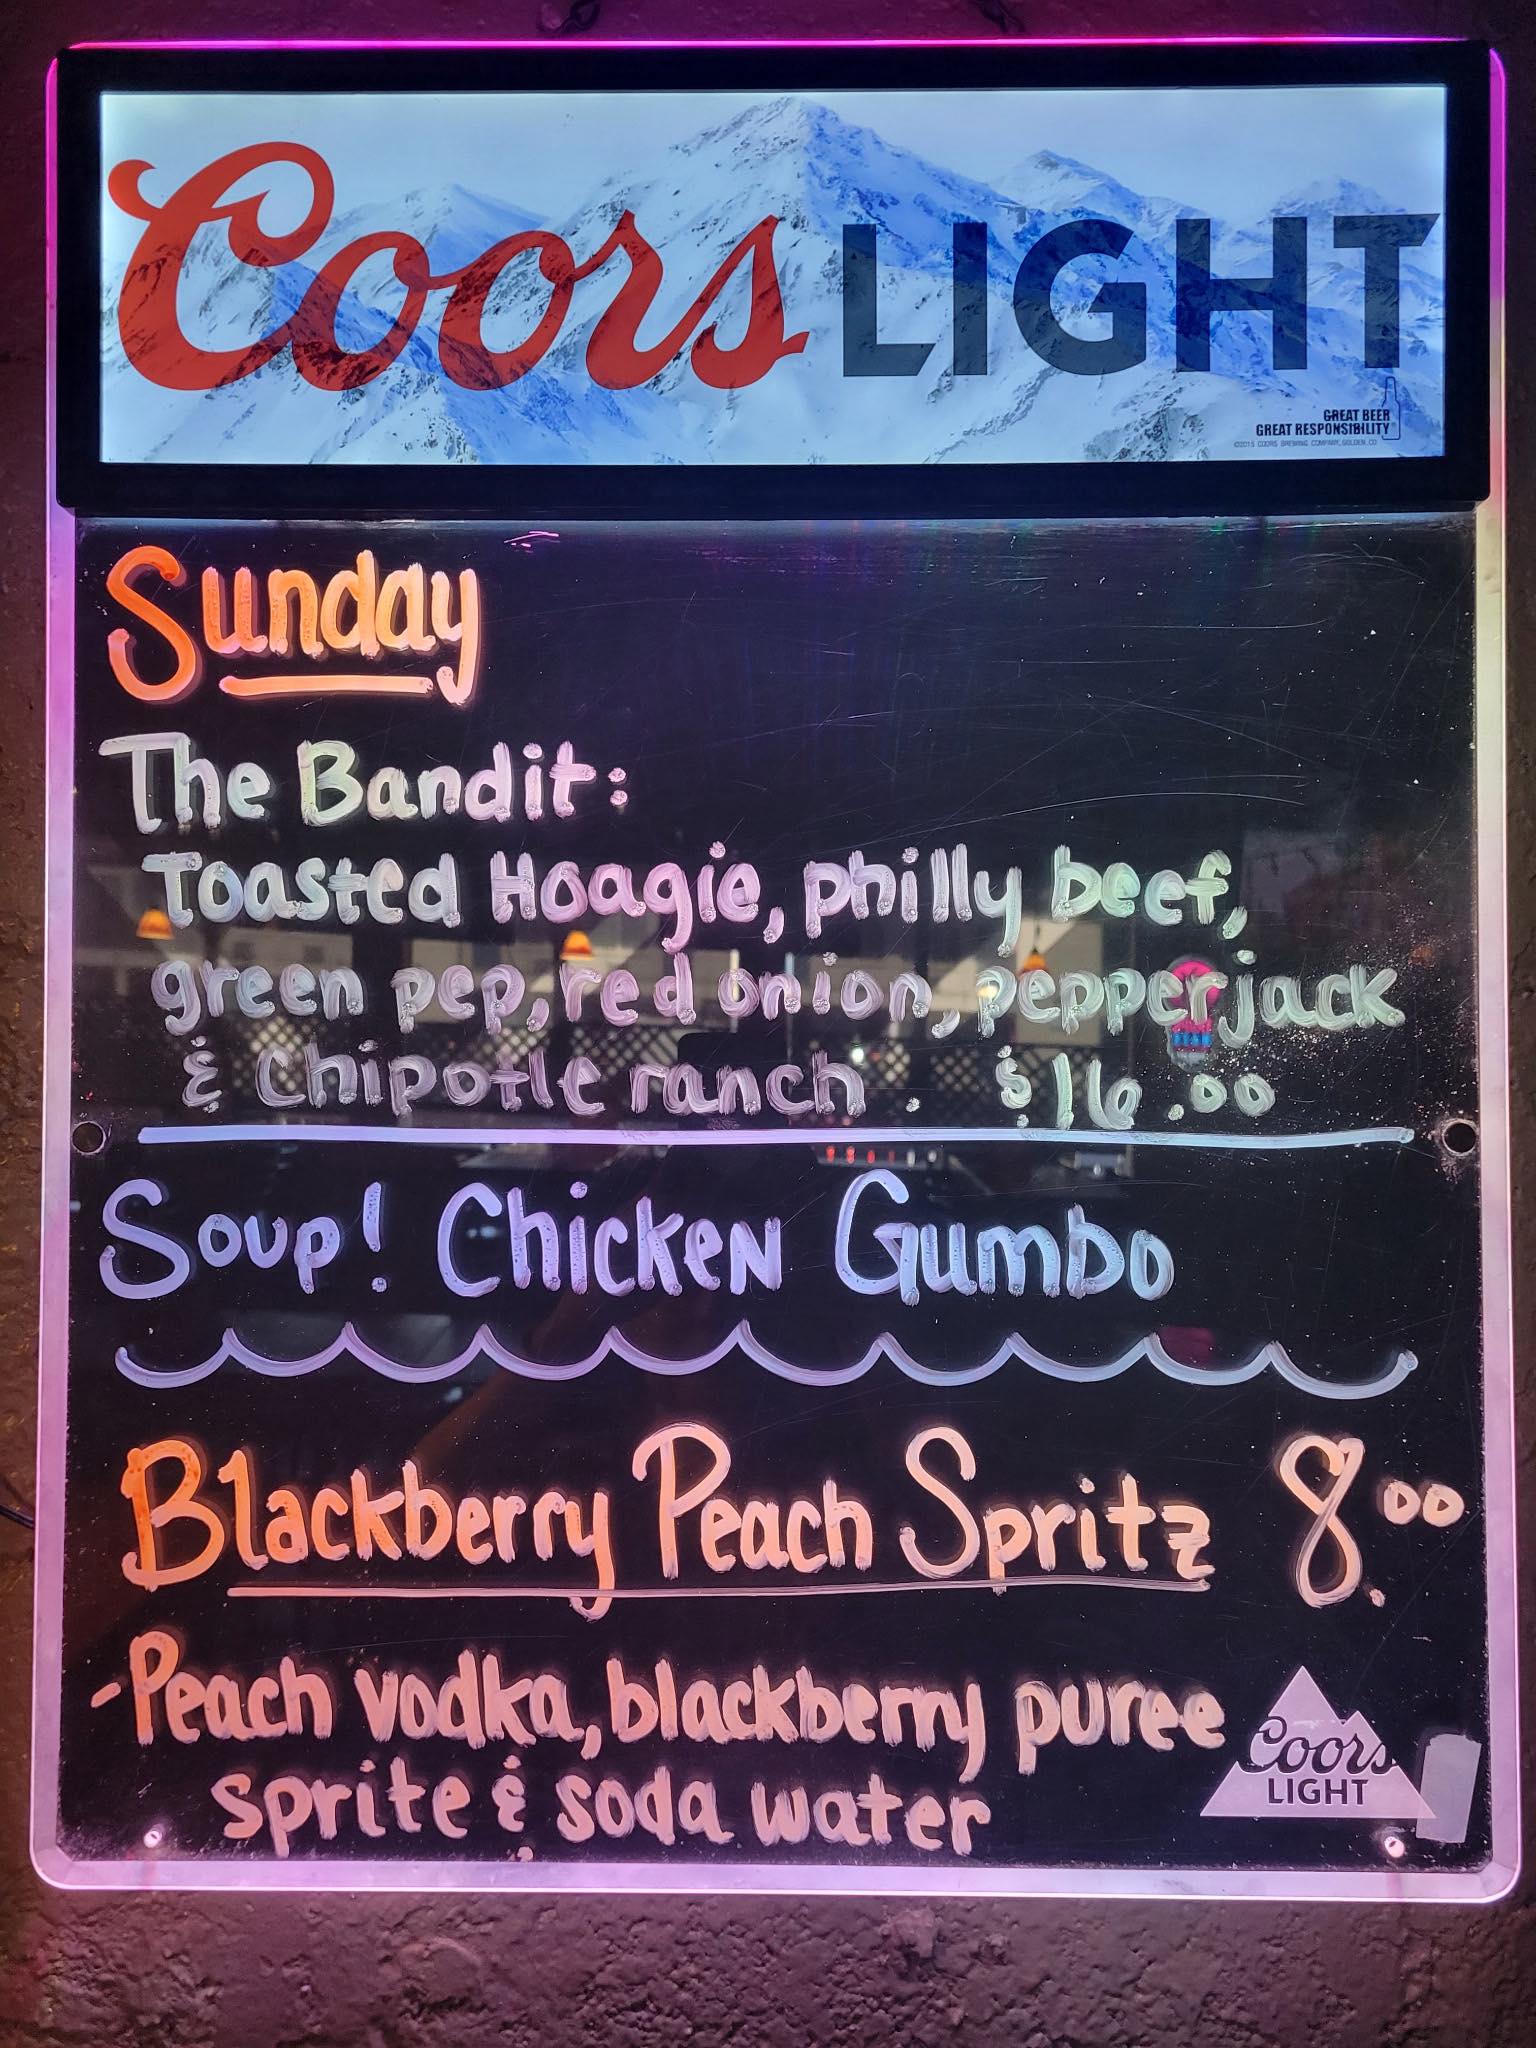 Coors LIGHT
GREAT BEER
GREAT RESPONSIBILITY
©2015 COORS BREWING COMPANY, GOLDEN, CO
Sunday
The Bandit:
Toasted Hoagie, philly beef,
green pep, red onion, pepperjack
& Chipotle ranch. $16.00
Soup! Chicken Gumbo
Blackberry Peach Spritz 8.00
-Peach vodka, blackberry puree
sprite & soda water
Coors
LIGHT